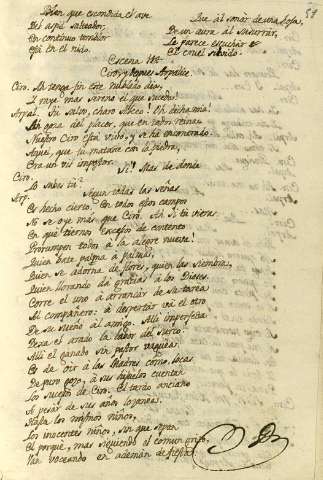 51
Bien que escondida el ave
Del aspid salvador,
En continuo temblor
Está en el nido.
Que al sonar de una hoja,
De un aura al susurrar,
Le parece escuchar
El cruel silvido.
Escena
Ciro, y luego Arpalice
Ciro. Ah tenga fin este cuidado, dios,
I raye mas sereno el que sueño!
Arpal. Tu salvo, charo Alceo! Oh dicha mia!
Ah goza del placer, que en todos reina:
Nuestro Ciro está vivo, y se ha encontrado.
Aquel, que tu mataste con la piedra,
Era un vil impostor.
Ciro. Si! Mas de donde
Lo sabes tú?
Arp. Segun todas las señas
Es hecho cierto. En todo estos campos
No se oye mas que Ciro. Ah Si tu vieras
En qué tiernos excesos de contento
Prorrumpen todos à la alegre nueva!
Quien bate palma a palma,
Quien se adorna de flores, quien las siembra,
Quien llorando dá gracias à los Dioses.
Corre el uno a arrancar de su tarea
Al compañero: à despertar vá el otro
De su sueño al amigo. Alli imperfecta
Dexa el arado la labor del surco:
Alli el ganado sin pastor vaguea.
Es de oir à las Madres como locas
De puro gozo, à sus hijuelos cuentan
Los sucesos de Ciro. El tardo anciano
A pesar de sus años lozanea.
Hasta los mismos niños,
Los inocentes niños, sin que sepan
El porqué, mas siguiendo el comun grito,
Van voceando en ademán de fiesta: